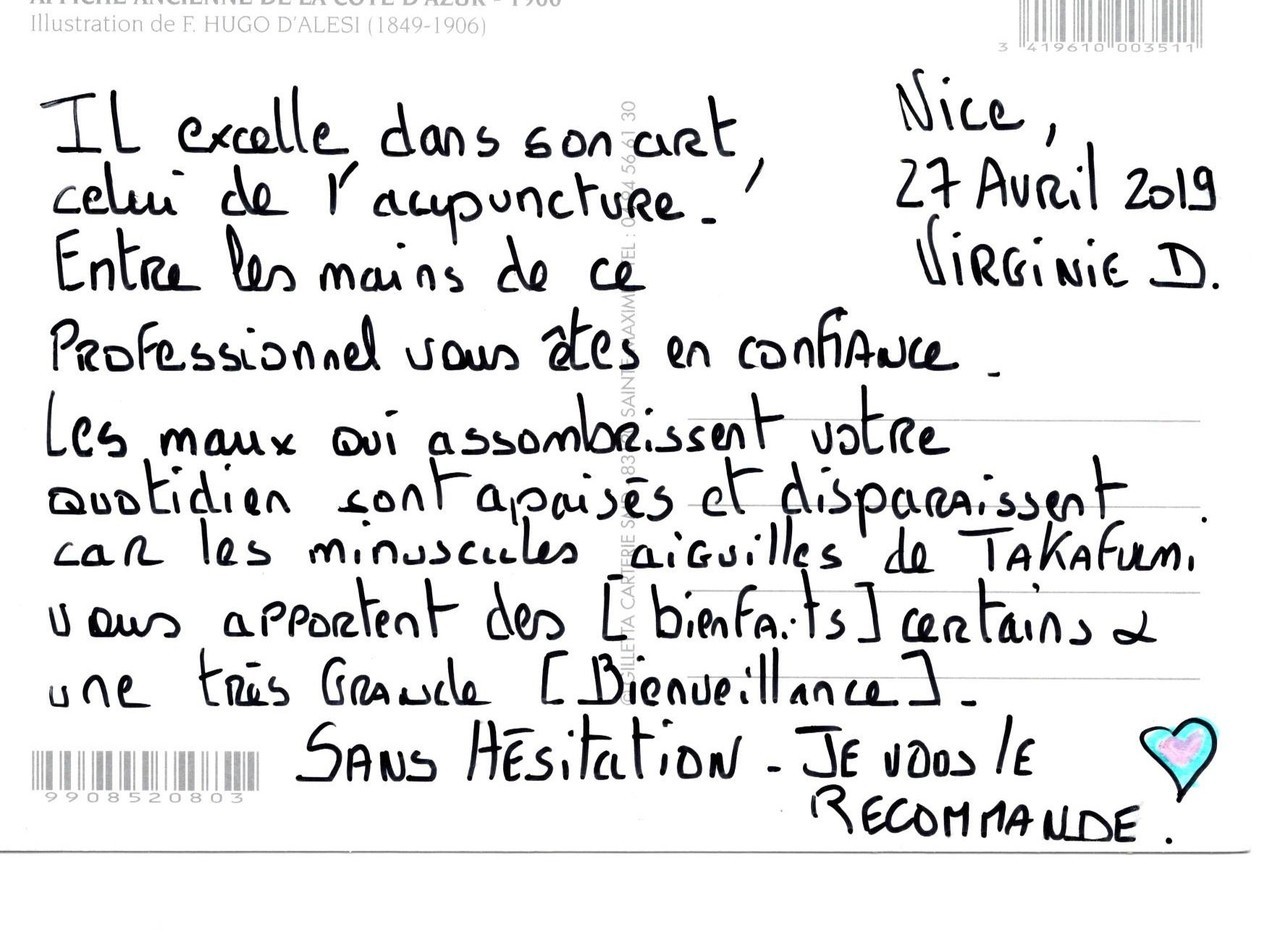 AFFICHE ANCIENNE DE LA CÔTE D'AZUR - 1900
Illustration de F. HUGO D'ALESI (1849-1906)
3 419610 003511
Nice,
27 Avril 2019
Virginie D.
Il excelle dans son art,
celui de l'acupuncture.
Entre les mains de ce
Professionnel vous êtes en confiance.
Les maux qui assombrissent votre
quotidien sont apaisés et disparaissent.
car les minuscules aiguilles de Takafumi
vous apportent des [bienfaits] certains &
une très Grande [Bienveillance].
SANS HÉSITATION - JE VOUS LE
RECOMMANDE.
GILLETTA CARTERIE
TEL : 04 94 56 61 30
9908520803